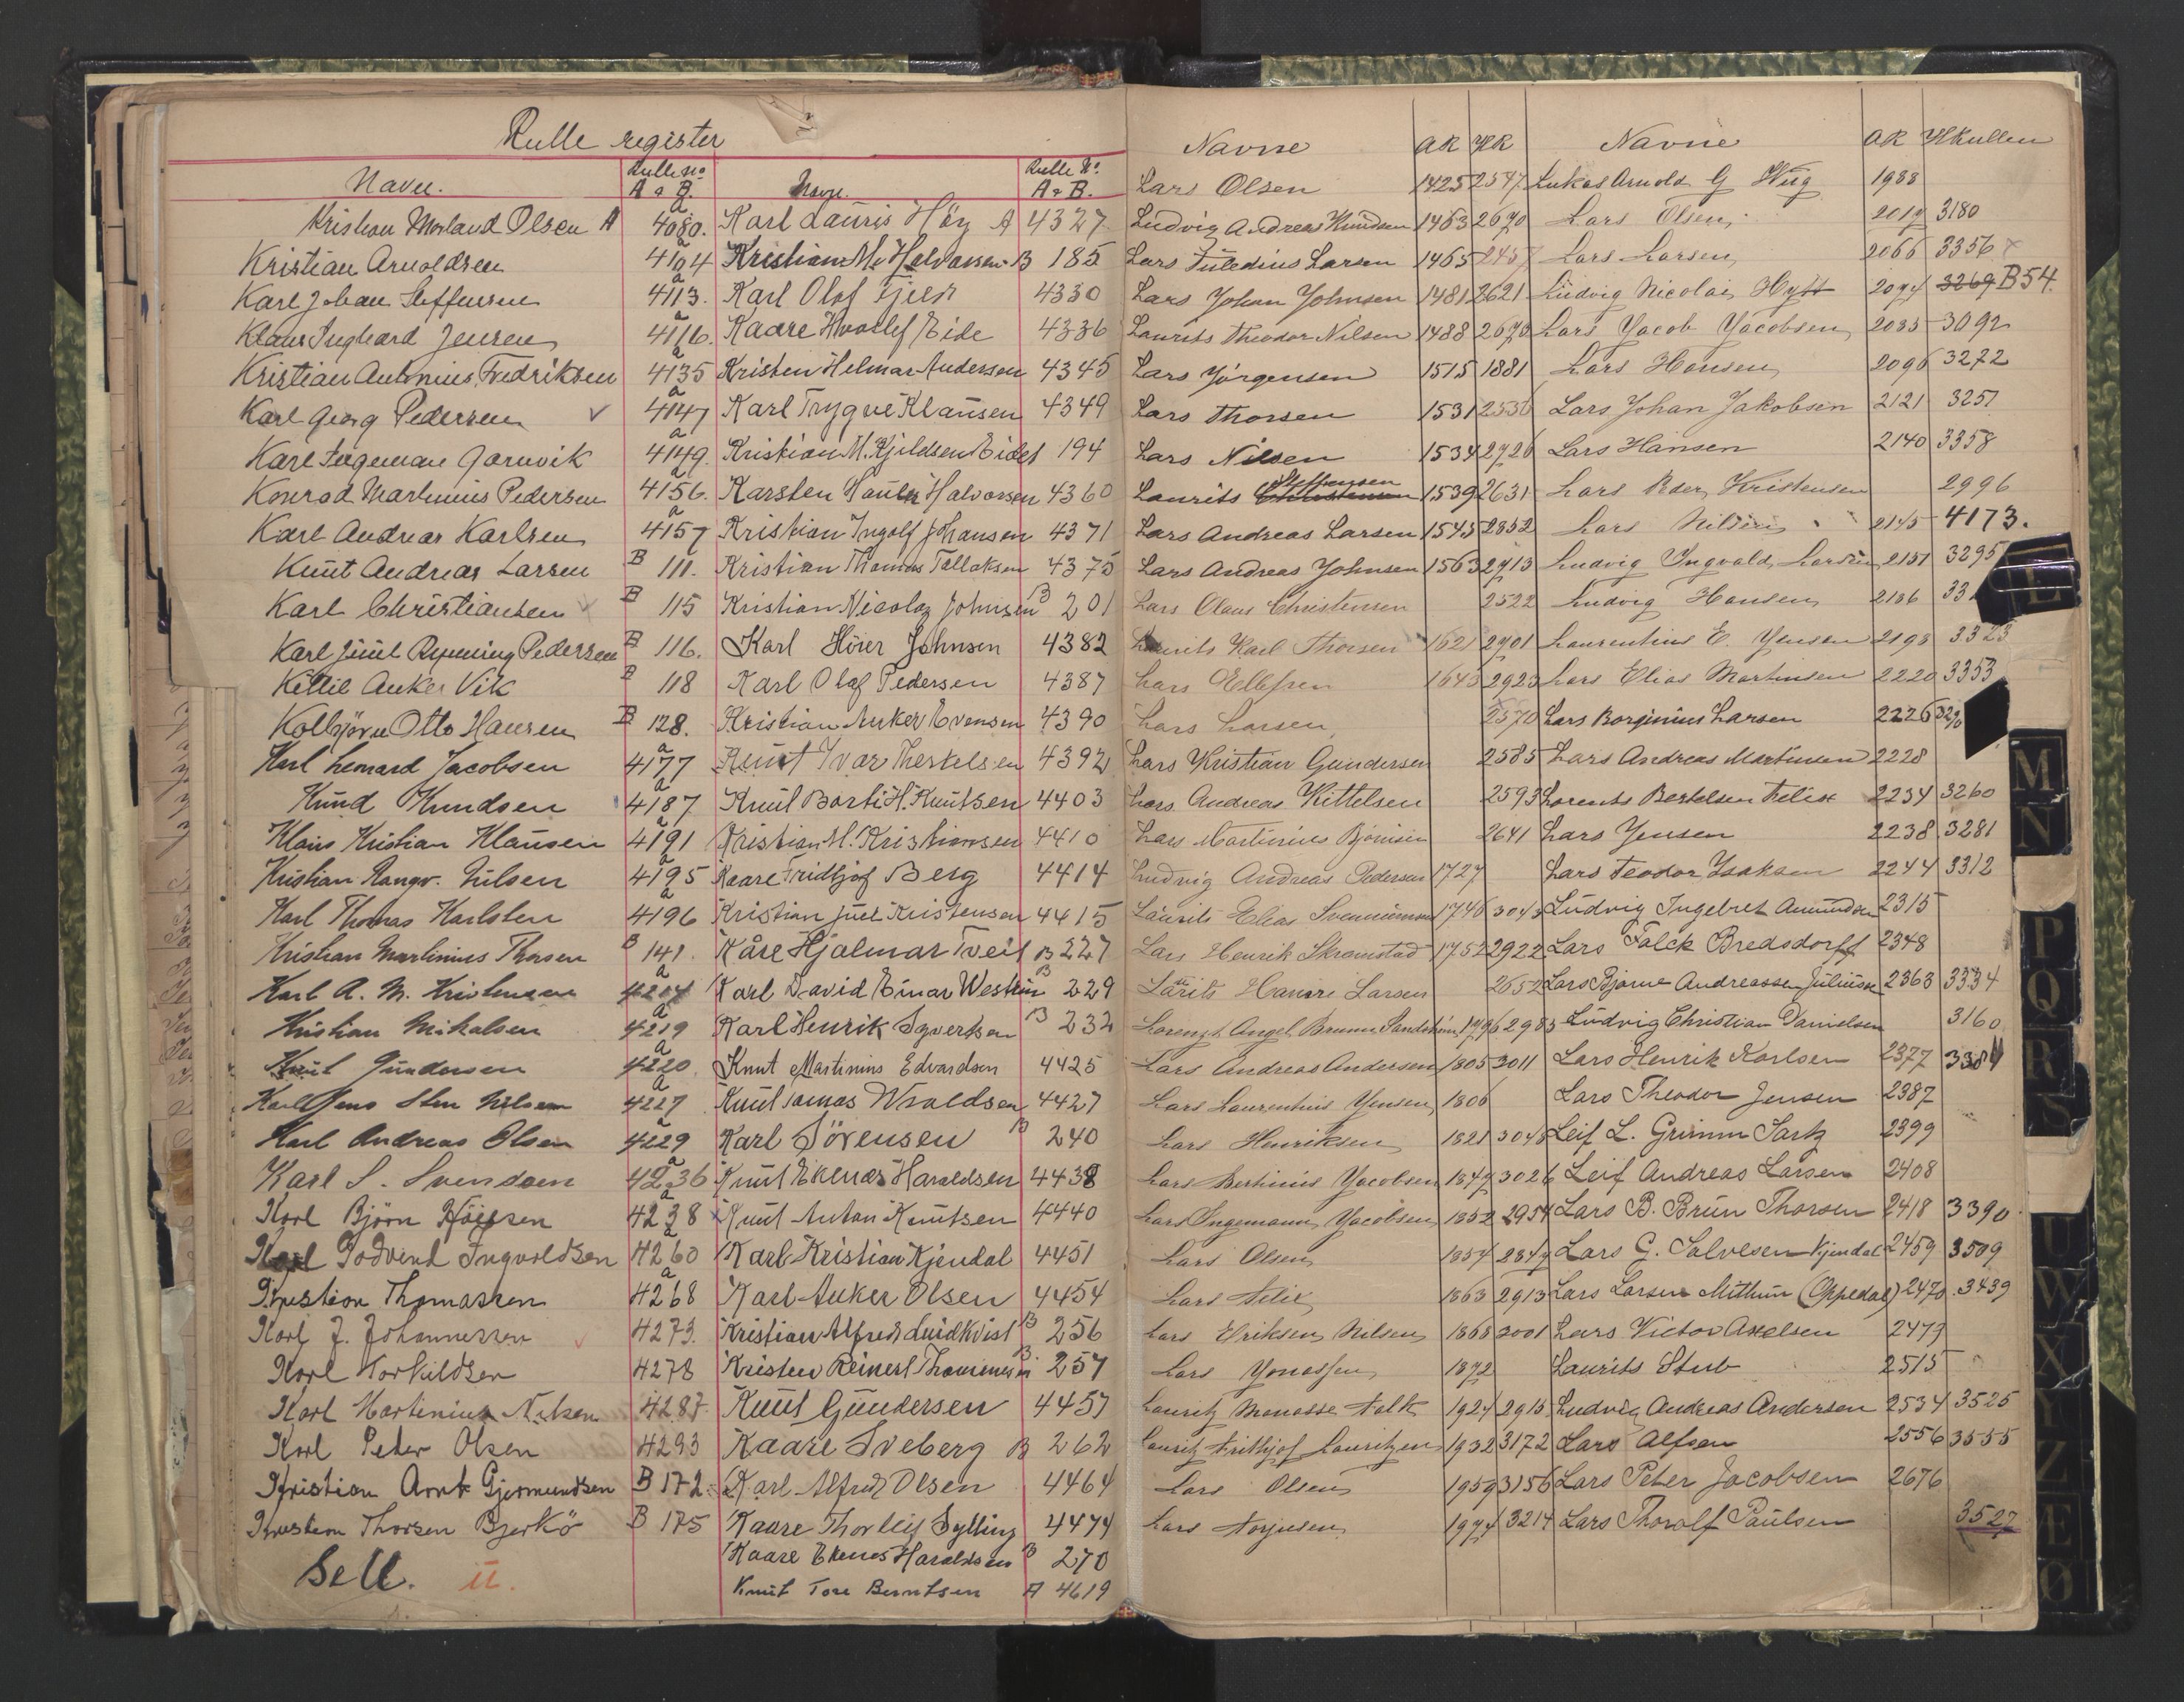 Rulle register
Navn. Rulle No A o B. Navn. Rulle No A o B.
Kristian Morland Olsen A 4080.
Kristian Arnoldsen a 4104
Karl Johan Steffensen a 4113.
Klaus Inghard Jensen a 4116.
Kristian Antonius Fredriksen a 4135
Karl Georg Pedersen a 4147
Karl Ingeman Jarnvik a 4149.
Konrad Martinius Pedersen a 4156.
Karl Andreas Karlsen a 4157
Knut Andreas Larsen B 111.
Karl Christiansen B 115
Karl Juul Rynning Pedersen B 116.
Kittil Anker Vik B 118
Kolbjörn Otto Hansen B 128.
Karl Leonard Jacobsen a 4177
Knud Knudsen a 4187
Klaus Kristian Klausen a 4191
Kristian Rangv. Nilsen a 4195
Karl Thomas Karlsen a 4196
Kristian Martinius Thorsen B 141.
Karl A. M. Kristensen a 4214
Kristian Mikalsen a 4219
Knut Gundersen a 4220
Karl Jens Sten Nilsen a 4227
Karl Andreas Olsen a 4229
Karl S. Svendsen a 4236
Karl Björn a 4238
Karl Godvind Ingvoldsen a 4260
Kristian Thomassen a 4268
Karl J. Johannessen 4273.
Karl Torkildsen 4278
Karl Martinius Nilsen 4287.
Karl Peter Olsen 4293
Kristian Arnt Gjermundsen B 172.
Kristian Thorsen Bjerkö B 175
Se U. u.
Karl Lauris Höy A 4327
Kristian M. Halvorsen B 185
Karl Olaf Fjeld 4330
Kaare Eide 4336
Kristen Helmar Andersen 4345
Karl Trygve Klausen 4349
Kristian M. Kjeldsen Eidet 194
Karsten Halvorsen 4360
Kristian Ingolf Johansen 4371
Kristian Thomas Tallaksen 4375
Kristian Nicolay Johnsen B 201
Karl Höier Johnsen 4382
Karl Olaf Pedersen 4387
Kristian Anker Evensen 4390
Knut Ivar Therkelsen 4392
Knut Barti H. Knutsen 4403
Kristian M. Kristiansen 4410
Kaare Fridtjof Berg 4414
Kristian Juel Kristensen 4415
Kåre Hjalmar Tveit B 227
Karl David Einar Westrin B 229
Karl Henrik Syvertsen B 232
Knut Martinius Edvardsen 4425
Knut Tomas Wroldsen 4427
Karl Sörensen B 240
Knut Ekenes Haraldsen 4438
Knut Anton Knutsen 4440
Karl Kristian Kjendal 4451
Karl Anker Olsen 4454
Kristian Alfred Lindkvist B 256
Kristen Reinert Thommesen B 257
Knut Gundersen 4457
Kaare Sveberg B 262
Karl Alfred Olsen 4464
Kaare Thorleif Sylling 4474
Kaare Ekenes Haraldsen B 270
Knut Tore Berntsen A 4619
Navne AR HR Navne AR HRullen
Lars Olsen 1425 2547
Ludvig Andreas Knudsen 1463 2690
Lars Larsen 1465 2457
Lars Johan Johnsen 1481 2621
Laurits Theodor Nilsen 1488 2670
Lars Jörgensen 1515 1881
Lars Thorsen 1531 2536
Lars Nilsen 1534 2726
Laurits Christensen Steffensen 1539 2631
Lars Andreas Larsen 1545 2852
Lars Andreas Johnsen 1563 2713
Lars Olaus Christensen 2522
Laurits Karl Thorsen 1621 2901
Lars Ellefsen 1643 2923
Lars Larsen 2570
Lars Kristian Gundersen 2585
Lars Andreas Kittelsen 2593
Lars Martinius Björnsen 2641
Ludvig Andreas Pedersen 1727
Laurits Elias 1746 3043
Lars Henrik Skramstad 1752 2922
Larits Hansri Larsen 2652
Lorentz Angel Brumm 1796 2985
Lars Andreas Andersen 1805 3011
Lars Laurentius Jensen 1806
Lars Henriksen 1821 3048
Lars Bertinius Jacobsen 1849 3026
Lars Ingemann Jacobsen 1852 2954
Lars Olsen 1854 2849
Lars Felix 1863 2913
Lars Eriksen Nilsen 1868 3001
Lars Jonassen 1872
Lauritz Manasse Falk 1924 2915
Lauritz Frithjof Lauritzen 1932 3172
Lars Olsen 1959 3156
Lars Torjusen 1974 3214
Lukas Arnold G Wiig 1988
Lars Olsen, 2019 3180
Lars Larsen, 2066 3356
Ludvig Nicolai Hyft 2074 3269 B54.
Lars Jacob Jacobsen 2085 3092
Lars Hansen 2096 3272
Lars Johan Jakobsen 2121 3257
Lars Hansen 2140 3358
Lars Peder Kristensen 2996
Lars Nilsen 2145 4173.
Ludvig Ingvald Larsen 2151 3295
Ludvig Hansen 2186 33
Laurentius E. Jensen 2198 3323
Lars Elias Martinsen 2220 3353
Lars Borginius Larsen 2226 3290
Lars Andreas Martinsen 2228
Lorents Bertelsen Felix 2234 3260
Lars Jensen 2238 3281
Lars Teodor Isaksen 2244 3312
Ludvig Ingebret Amundsen 2315
Lars Falck Bredsdorff 2348
Lars Bjarne Andreassen Juliussen 2363 3334
Ludvig Christian Danielsen 3160
Lars Henrik Karlsen 2377 3384
Lars Theodor Jensen 2387
Leif L. Grimm Sartz 2399
Leif Andreas Larsen 2408
Lars B. Brun Thorsen 2418 3390
Lars G. Salvesen Kjendal 2459 3509
Lars Larsen Mittun (Oppedal) 2470 3439
Lars Victor Axelsen 2473
Laurits Stub 2515
Ludvig Andreas Andersen 2534 3525
Lars Alfsen 2556 3555
Lars Peter Jacobsen 2676
Lars Thoralf Paulsen 3527
L
M
N
P
Q
R
S
U
W
X
Z
Æ
Ø